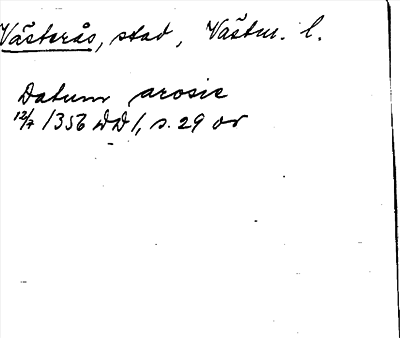 Västerås, stad, Västm. l.
Datum arosie
12/7 1356 DD 1, s. 29 or